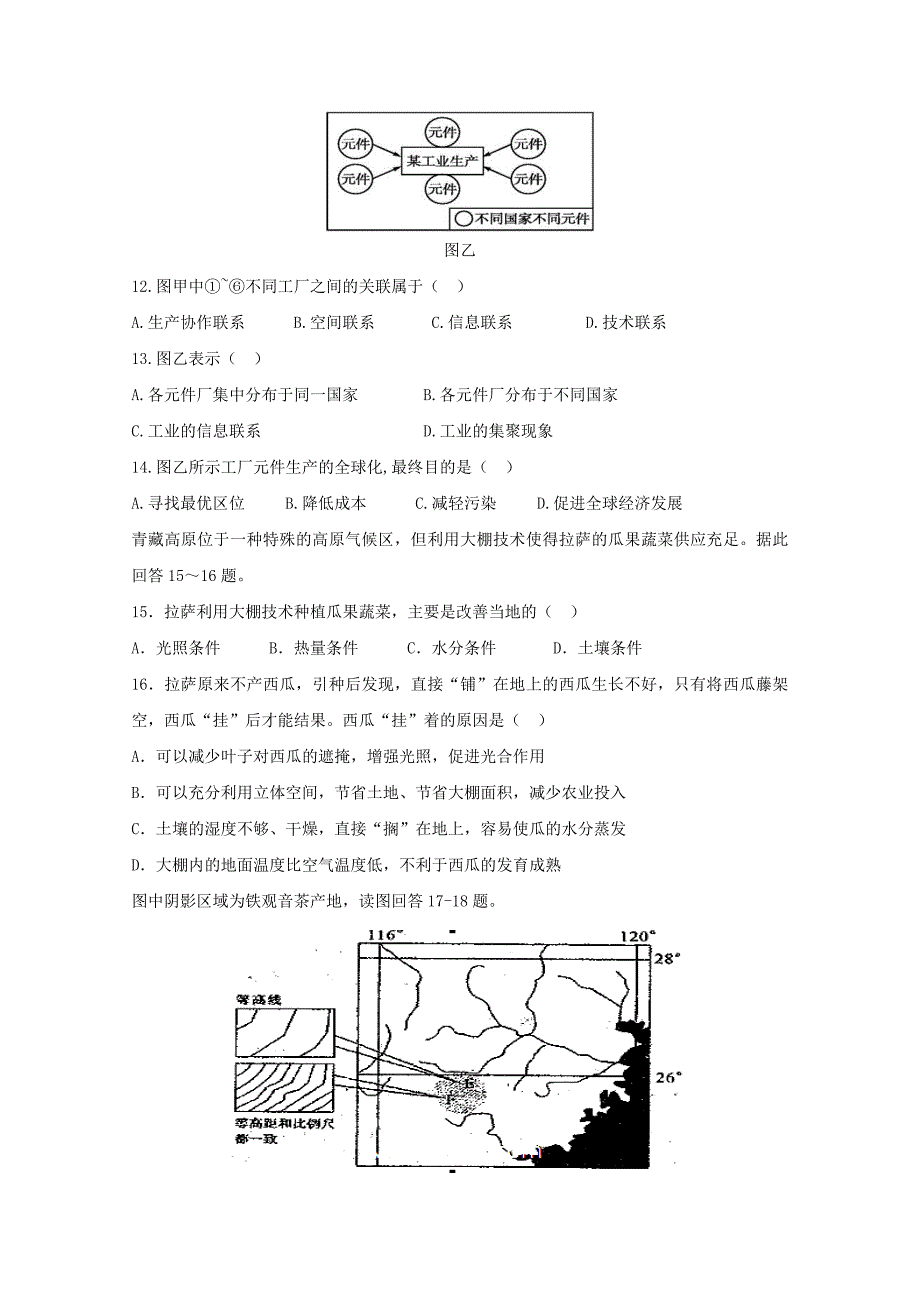 元件 元件 元件
某工业生产
元件 元件 元件
○不同国家不同元件
图乙
12.图甲中①~⑥不同工厂之间的关联属于（ ）
A.生产协作联系 B.空间联系 C.信息联系 D.技术联系
13.图乙表示（ ）
A.各元件厂集中分布于同一国家 B.各元件厂分布于不同国家
C.工业的信息联系 D.工业的集聚现象
14.图乙所示工厂元件生产的全球化,最终目的是（ ）
A.寻找最优区位 B.降低成本 C.减轻污染 D.促进全球经济发展
青藏高原位于一种特殊的高原气候区，但利用大棚技术使得拉萨的瓜果蔬菜供应充足。据此
回答 15～16 题。
15．拉萨利用大棚技术种植瓜果蔬菜，主要是改善当地的（ ）
A．光照条件 B．热量条件 C．水分条件 D．土壤条件
16．拉萨原来不产西瓜，引种后发现，直接“铺”在地上的西瓜生长不好，只有将西瓜藤架
空，西瓜“挂”后才能结果。西瓜“挂”着的原因是（ ）
A．可以减少叶子对西瓜的遮掩，增强光照，促进光合作用
B．可以充分利用立体空间，节省土地、节省大棚面积，减少农业投入
C．土壤的湿度不够、干燥，直接“搁”在地上，容易使瓜的水分蒸发
D．大棚内的地面温度比空气温度低，不利于西瓜的发育成熟
图中阴影区域为铁观音茶产地，读图回答 17-18 题。
116° 120°
28°
等高线
26°
等高距和比例尺
都一致